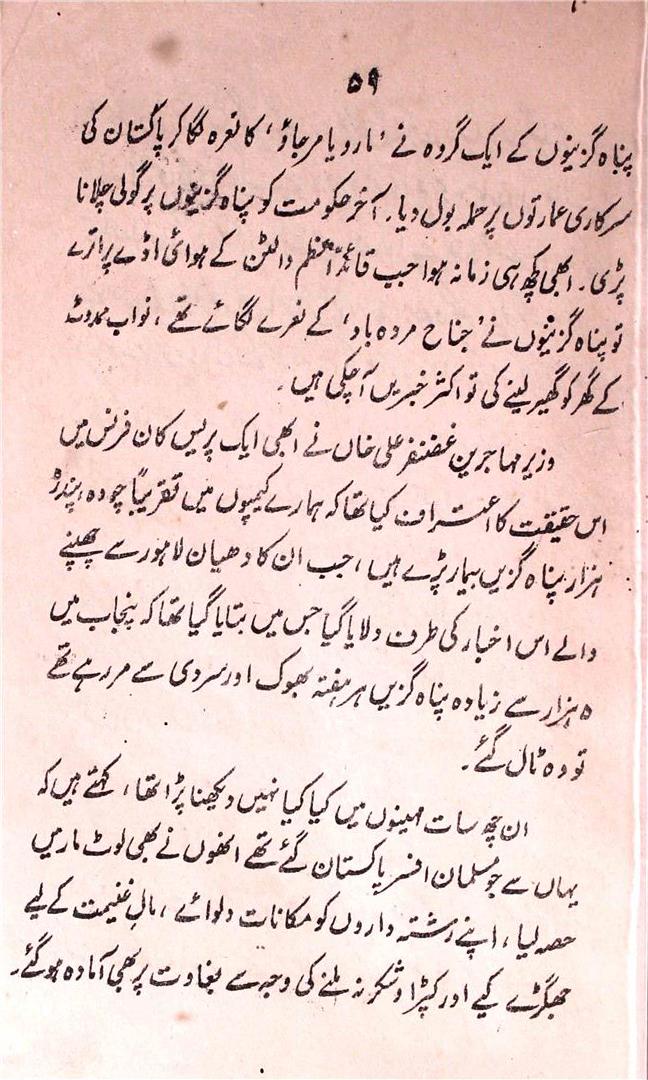 ۵۹
پناہ گزینوں کے ایک گروہ نے ’مارو یا مرجاؤ‘ کا نعرہ لگا کر پاکستان کی
سرکاری عمارتوں پر حملہ بول دیا۔ آخر حکومت کو پناہ گزینوں پر گولی چلانا
پڑی۔ ابھی کچھ ہی زمانہ ہوا جب قائد اعظم والٹن کے ہوائی اڈے پر اترے
تو پناہ گزینوں نے ’جناح مردہ باد‘ کے نعرے لگائے تھے، نواب ممدوٹ
کے گھر کو گھیر لینے کی تو اکثر خبریں آ چکی ہیں۔
وزیر مہاجرین غضنفر علی خاں نے ابھی ایک پریس کان فرنس میں
اس حقیقت کا اعتراف کیا تھا کہ ہمارے کیمپوں میں تقریباً چودہ، پندرہ
ہزار پناہ گزیں بیمار پڑے ہیں، جب ان کا دھیان لاہور سے چھپنے
والے اس اخبار کی طرف دلایا گیا جس میں بتایا گیا تھا کہ پنجاب میں
۵ ہزار سے زیادہ پناہ گزیں ہر ہفتہ بھوک اور سردی سے مر رہے تھے
تو وہ ٹال گئے۔
ان چھ سات مہینوں میں کیا کیا نہیں دیکھنا پڑا تھا، کہتے ہیں کہ
یہاں سے جو مسلمان افسر پاکستان گئے تھے انھوں نے بھی لوٹ مار میں
حصہ لیا، اپنے رشتہ داروں کو مکانات دلوائے، مالِ غنیمت کے لیے
جھگڑے کیے اور کپڑا و شکر نہ ملنے کی وجہ سے بغاوت پر بھی آمادہ ہو گئے۔